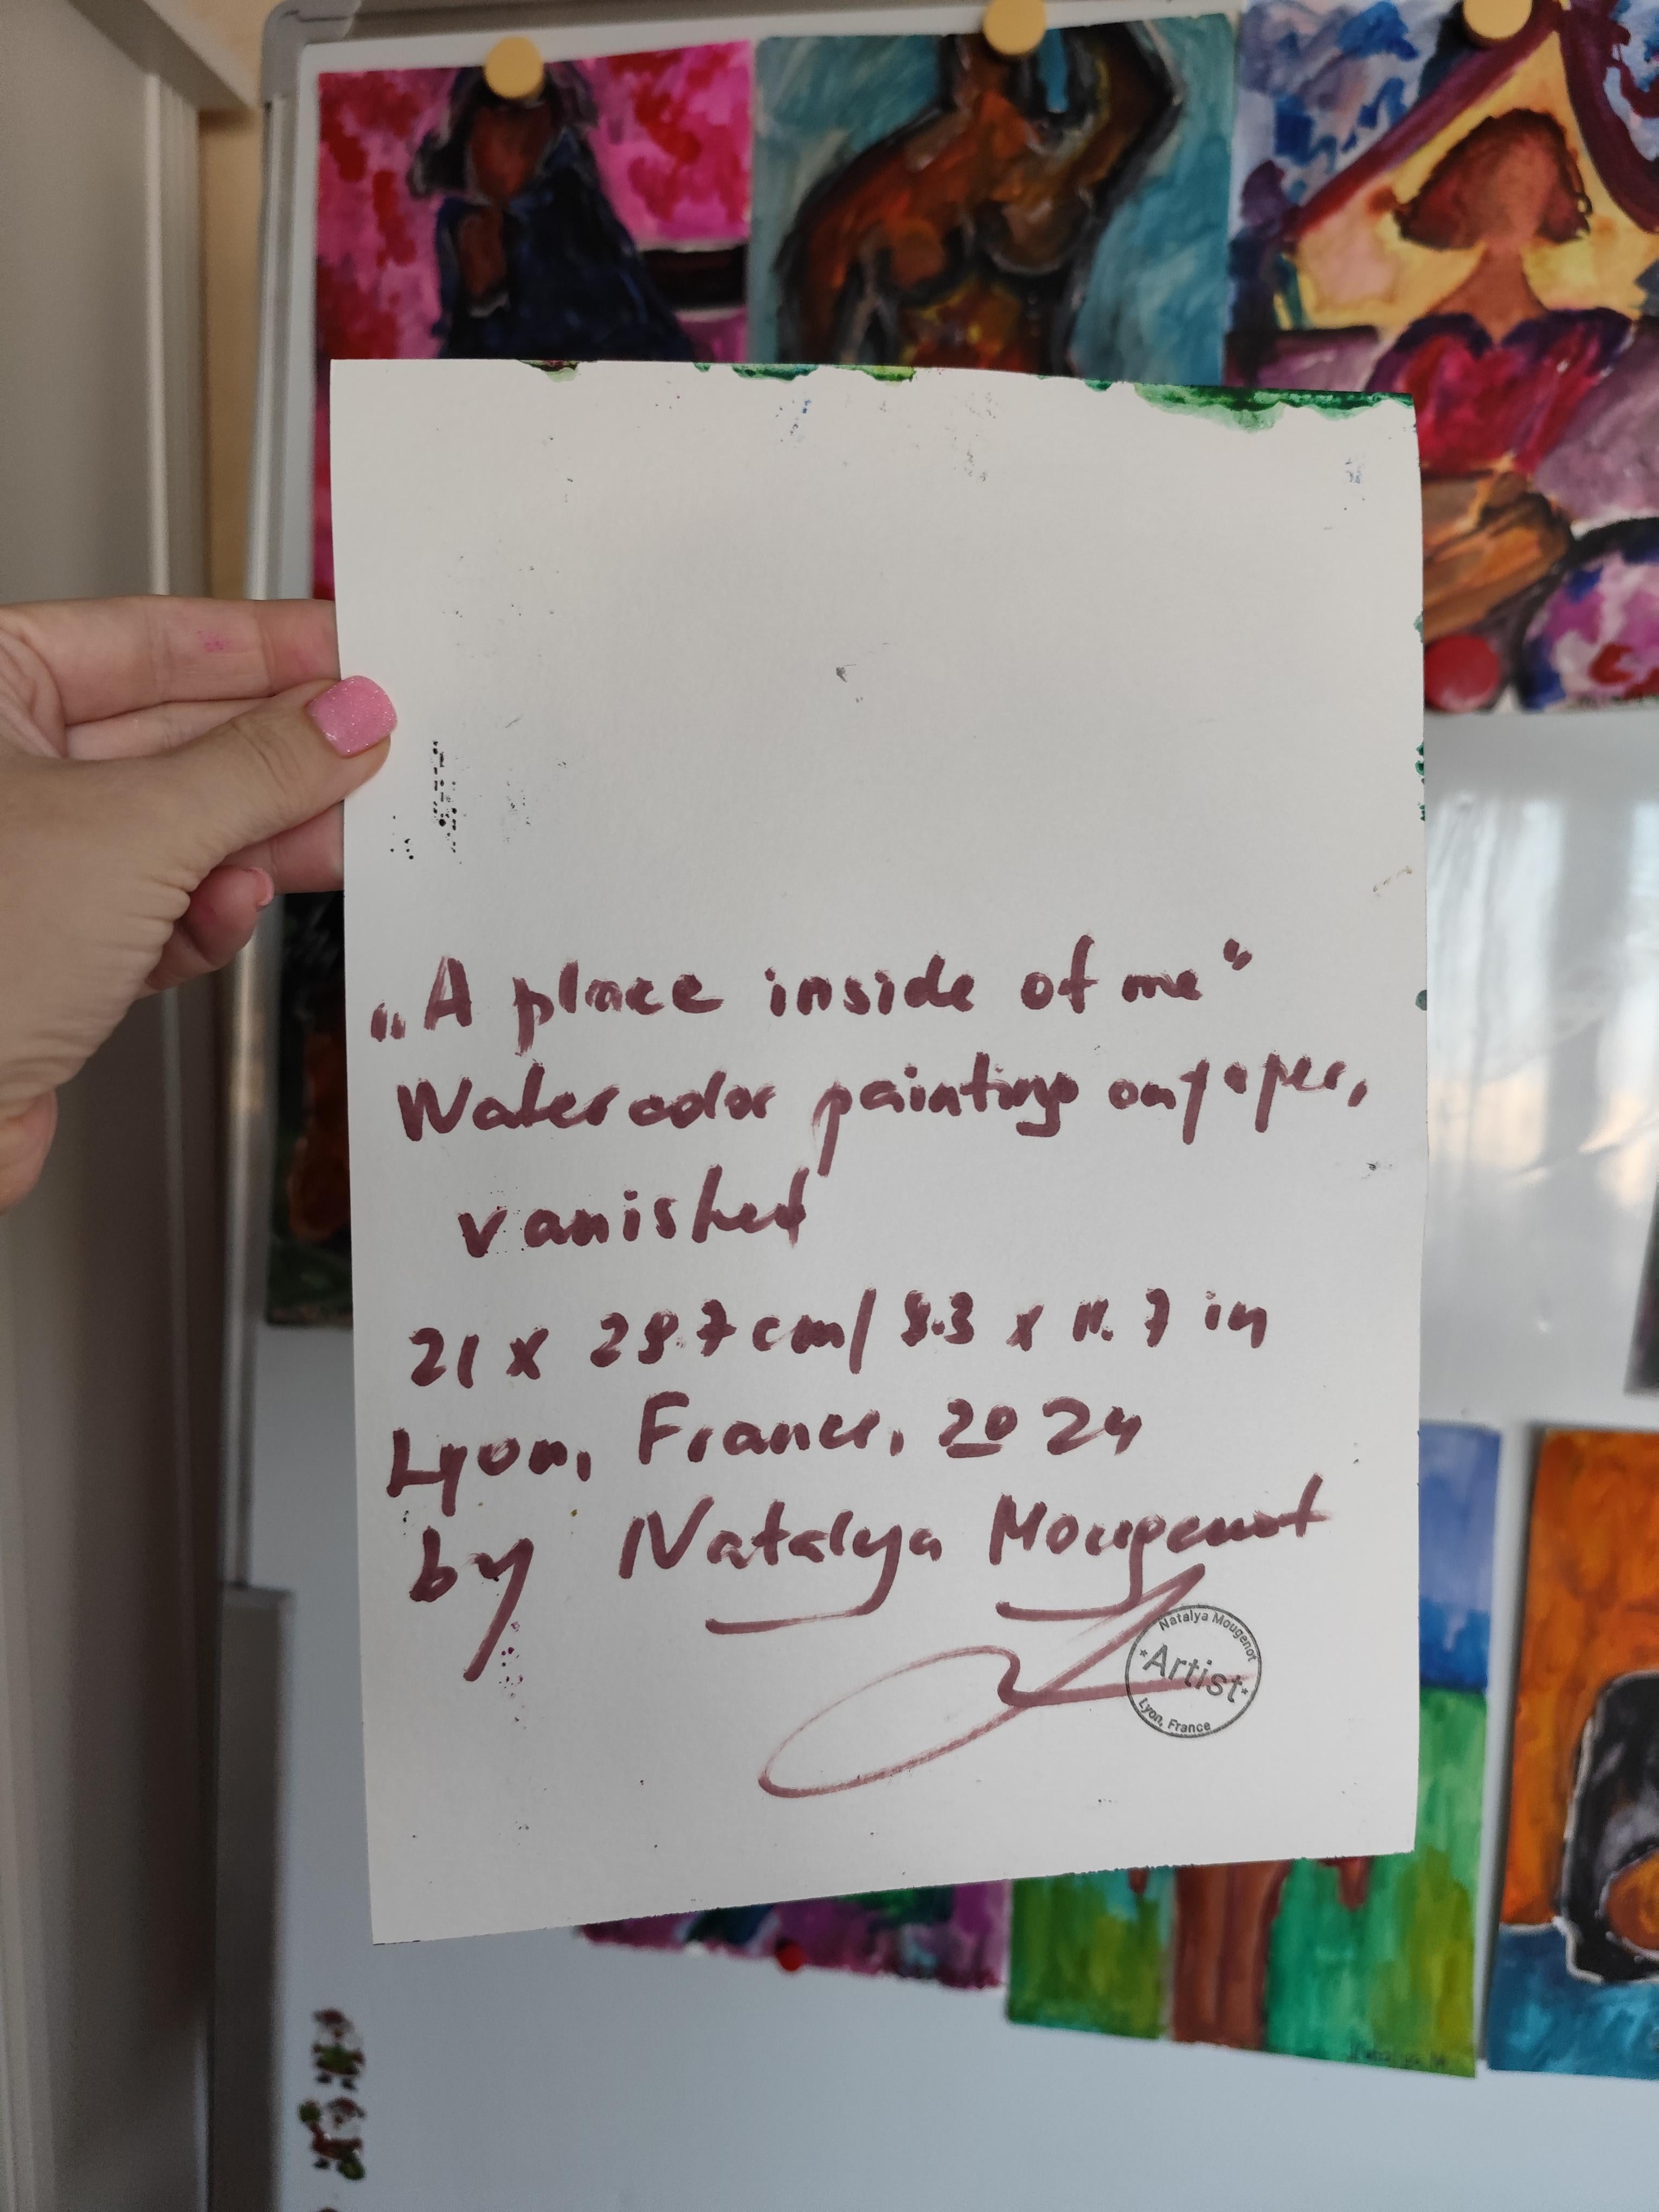 „A place inside of me“
Watercolor painting on paper,
vanished
21 x 29.7 cm/ 8.3 x 11.7 in
Lyon, France, 2024
by Natalya Mougenot
Natalya Mougenot
*Artist*
Lyon, France